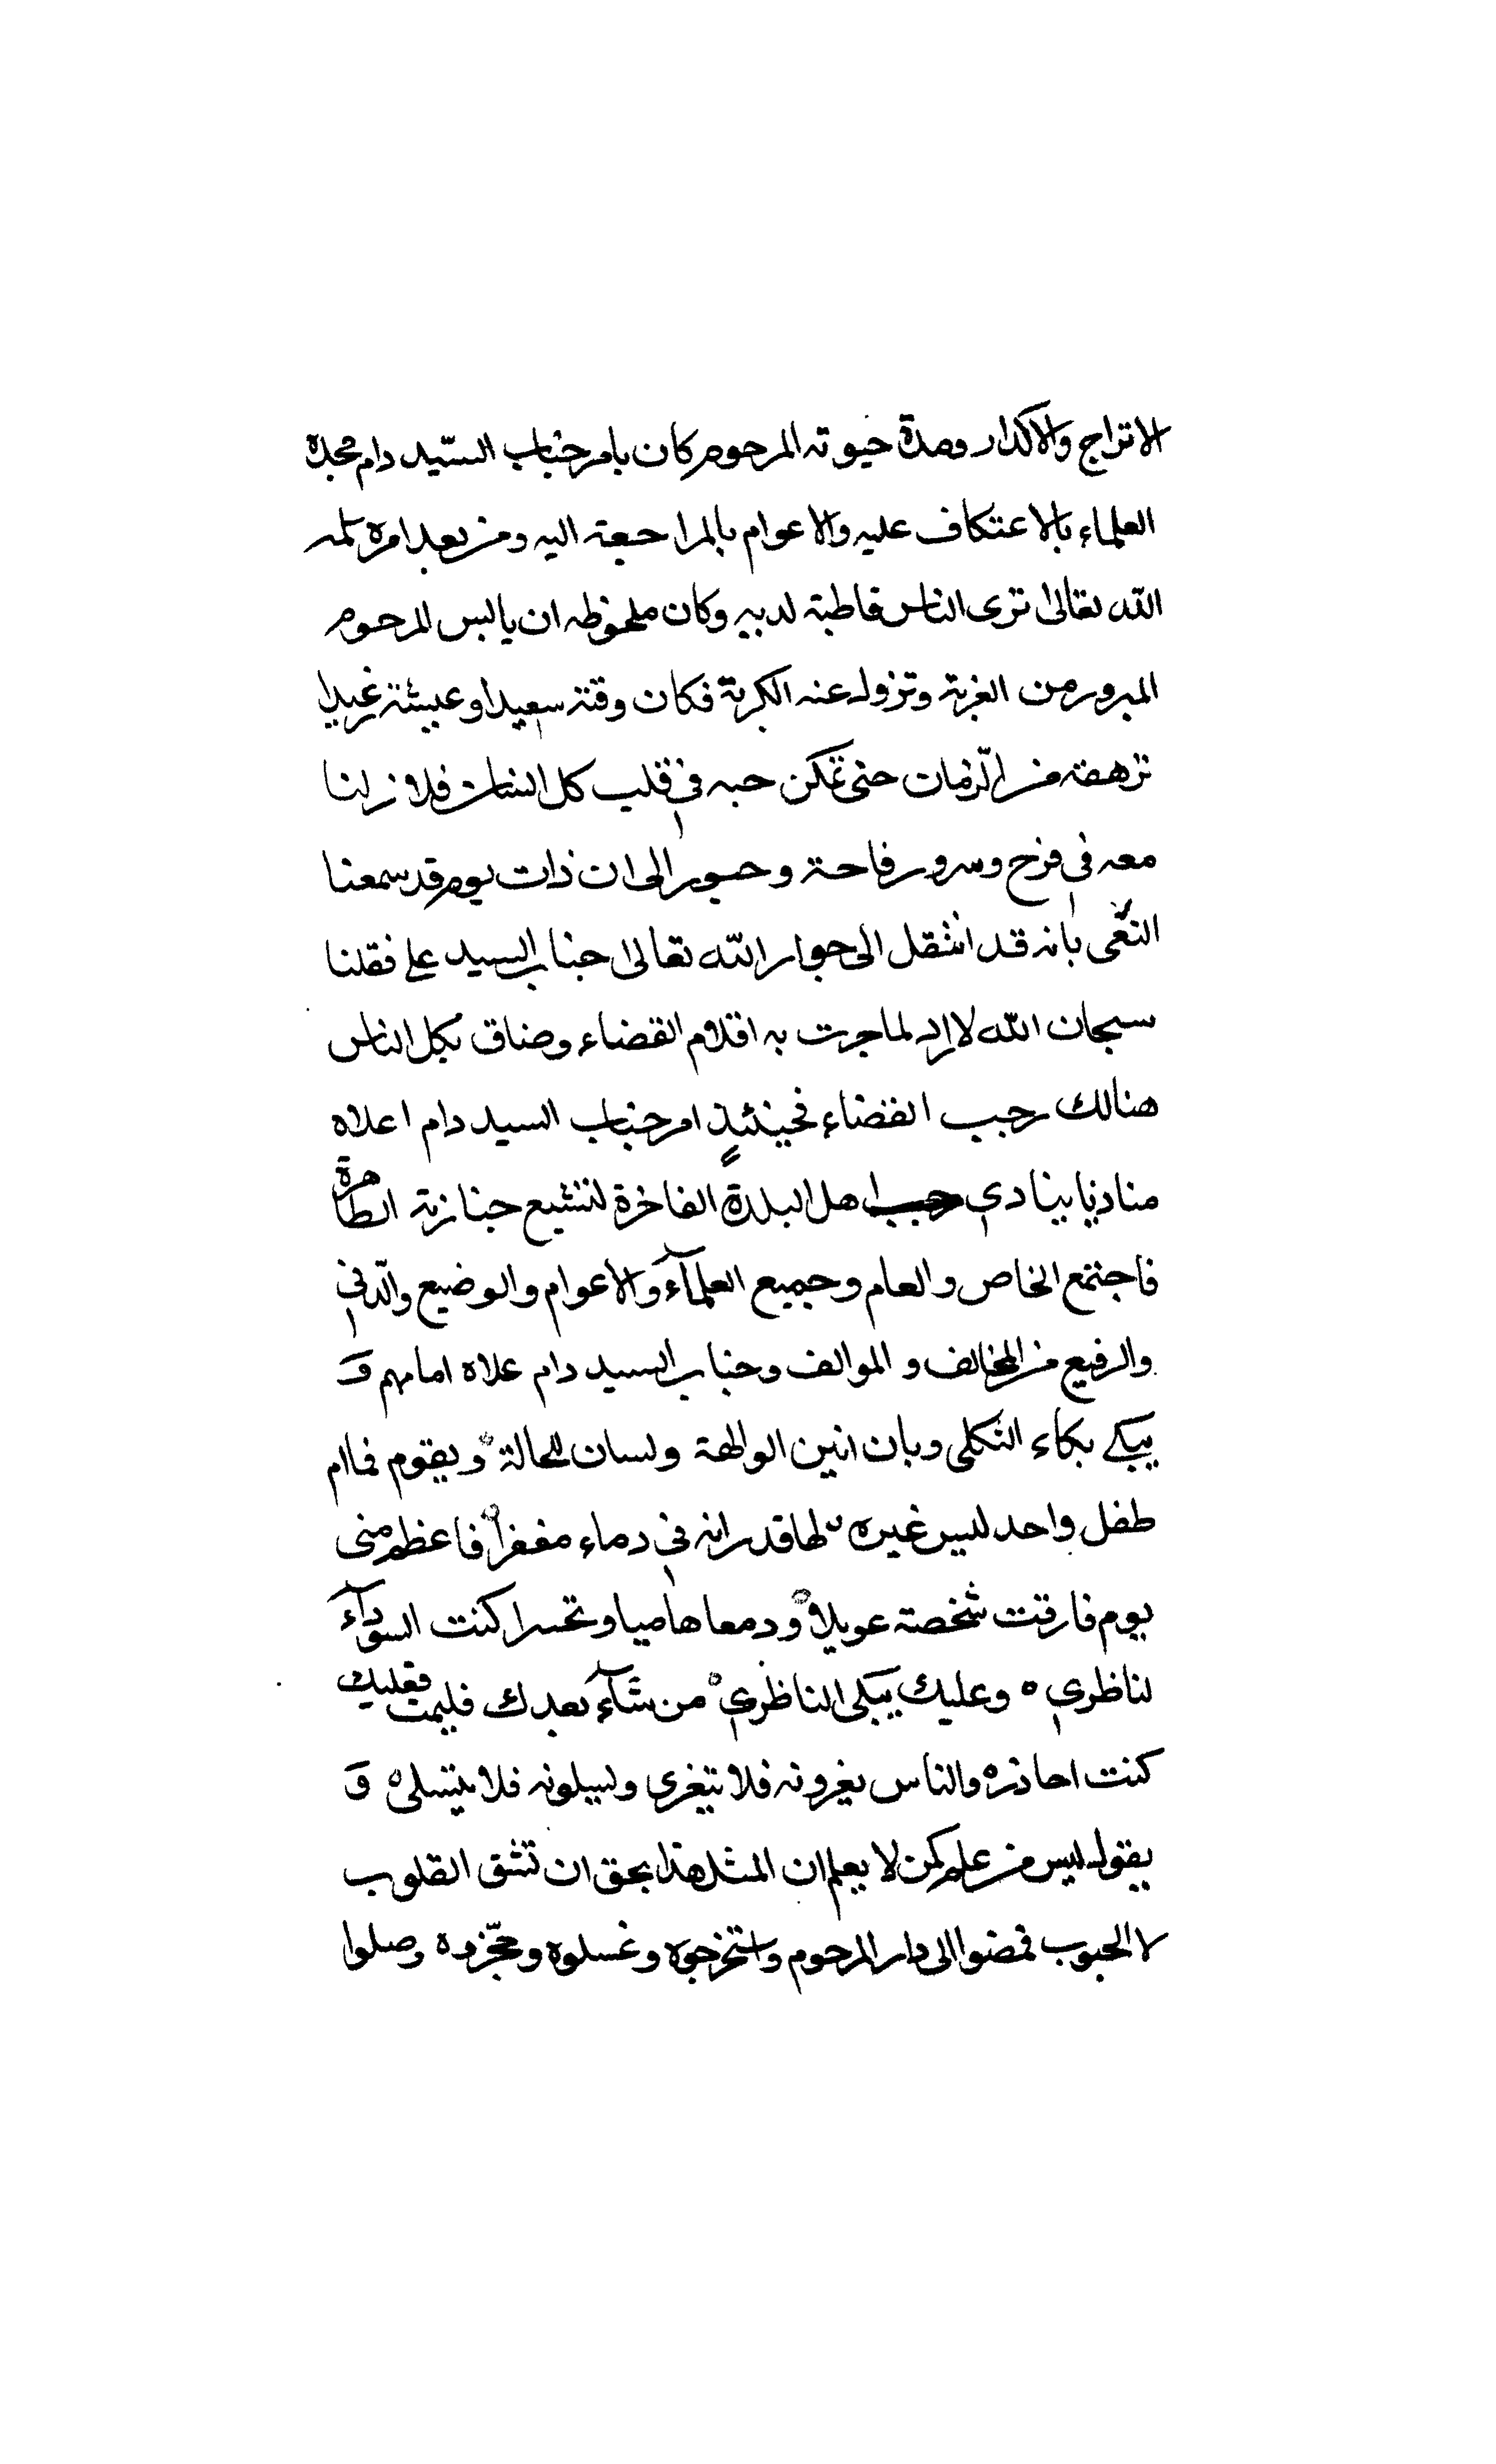 الاتراح والاكدار ومدة حيوته المرحوم كان بامر جناب السّيد دام مجده
العلماء بالاعتكاف عليه والاعوام بالمراجعة اليه ومن بعد امره سلمه
الله تعالى ترى الناس قاطبة لديه وكان ملحوظه ان يالبس المرحوم
المبرور من الغربة وتزول عنه الكربة فكان وقته سعيدا وعيشته رغيدا
ترهفة من الزمان حتى تمكن حبه في قلب كل انسان فلا زلنا
معه في فرح وسرور رفاحة وحبور الى ان ذات يوم قد سمعنا
النعى بانه قد انتقل الى جوار الله تعالى جناب السيد على فقلنا
سبحان الله لا اراد لما جرت به اقلام القضاء وضاق بكل الناس
هنالك رحب الفضاء فحينئذٍ امر جناب السيد دام اعلاه
مناديا ينادي اهل البلدة الفاخرة لتشييع جنازته الطاهرة
فاجتمع الخاص والعام وجميع العلمآء والاعوام والوضيع والدني
والرفيع من المخالف و الموالف وجناب السيد دام علاه امامهم و
يبكي بكاء الثكلى وبان انين الوالهة ولسان للحالة ويقوم فما ام
طفل واحد ليس غيره لها قد رانه في دماء مغفرا فاعظم منى
يوم فارقت شخصه عويلا ودمعا هاميا وتحسرا كنت السوادآء
لناظري وعليك يبكى الناظري من شآء بعدك فليمت فعليك
كنت احاذره والناس يغرونه فلا يتغرى ويسلونه فلا يتسلى و
يقول ليس من علم كمن لا يعلم ان المثل هذا بحق ان تشق القلوب
لا الجيوب فمضوا الى دار المرحوم واستخرجوه وغسلوه وجهزوه وصلوا